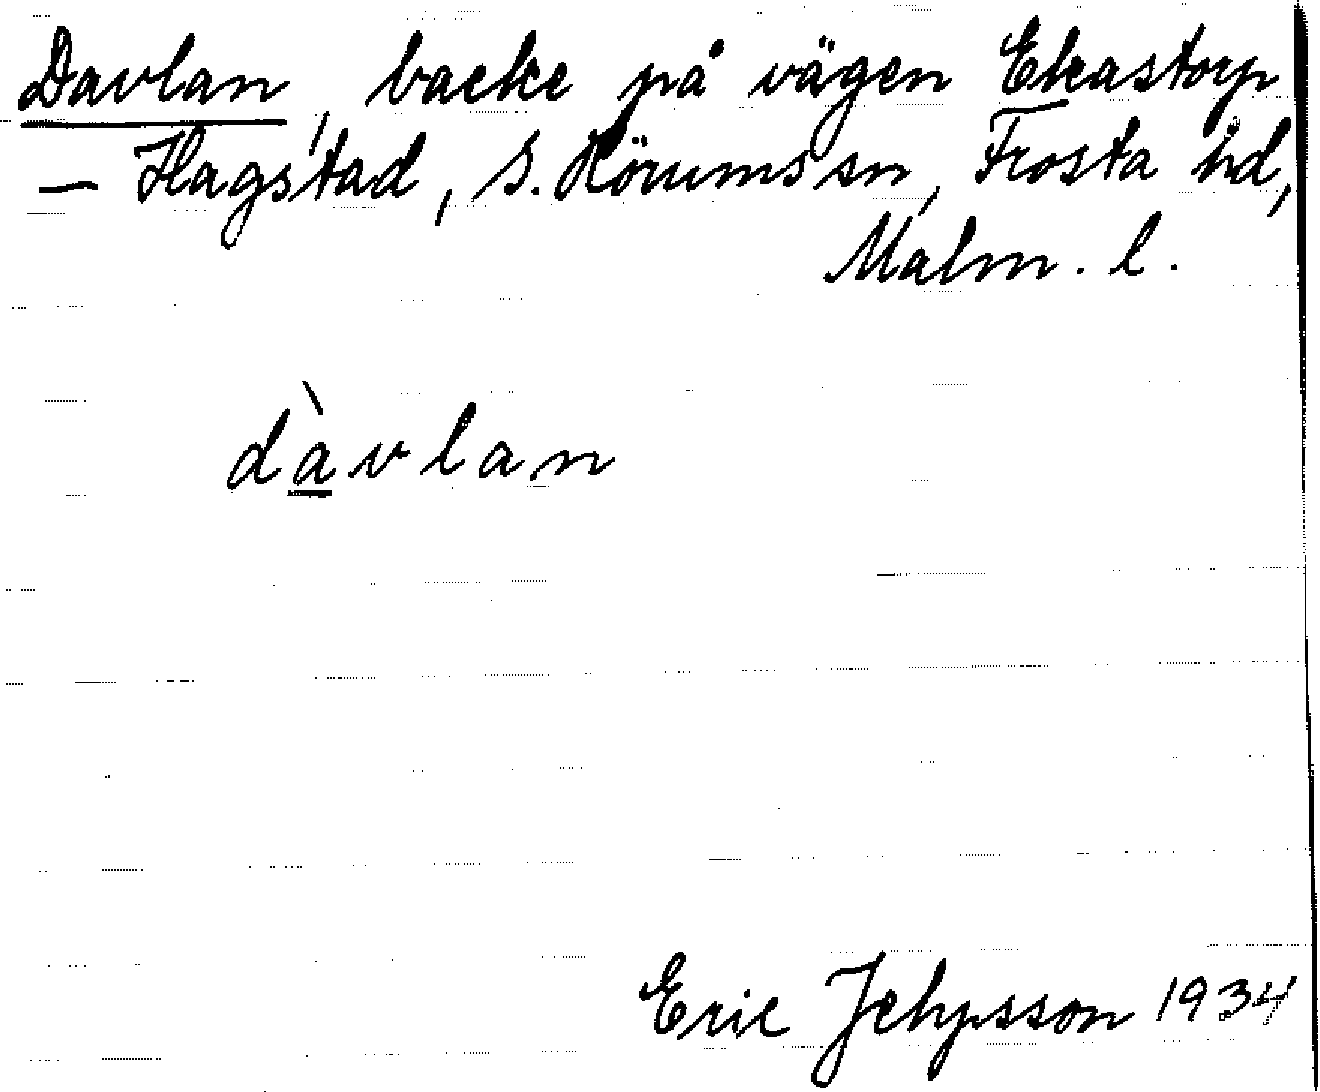 Davlan, backe på vägen Ekastorp
— Hagstad, S. Rörums sn, Frosta hd,
Malm. l.
dàvlan
Eric Jehpsson 1934